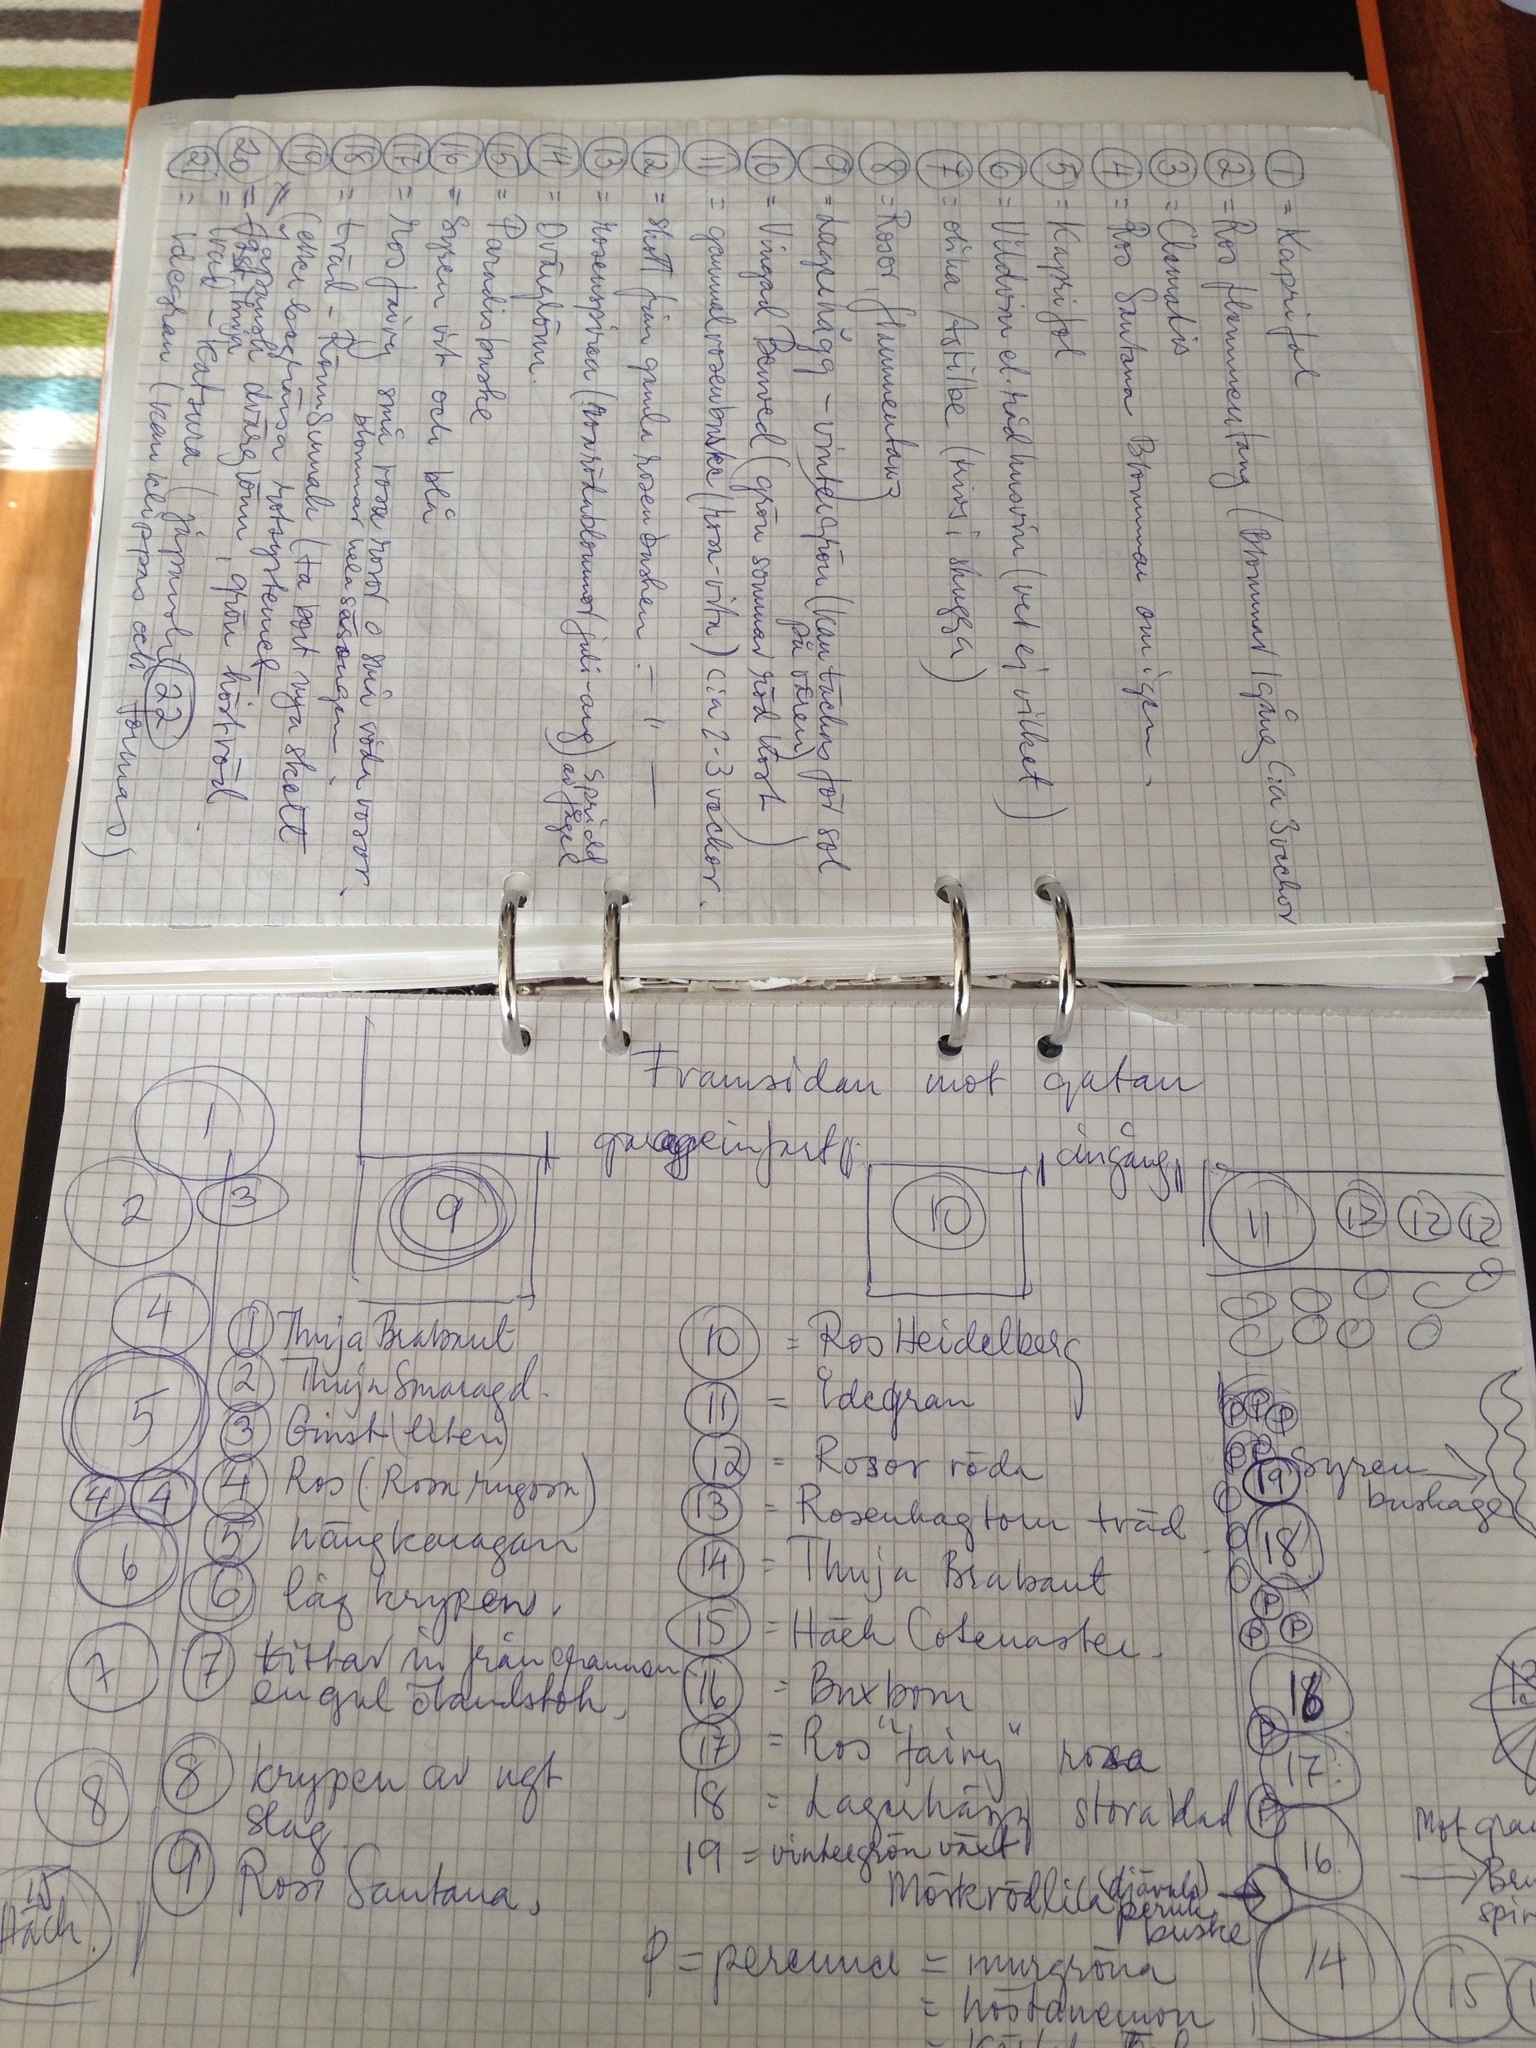 1 = Kaprifol
2 = Ros flammentanz (Blommar 1 gång c:a 3 veckor
3 = Clematis
4 = Ros Santana Blommar om igen
5 = Kaprifol
6 = Vildvin el. rådhusvin (vet ej vilket)
7 = olika Astilbe (trivs i skugga)
8 = Rosor, flammentanz
9 = Lagerhägg - vintergrön (kan täckas för sol
på våren)
10 = Vingad Benved (grön sommar röd höst)
11 = gammal rosenbuske (rosa-vita) c:a 2-3 veckor.
12 = skott från gamla rosenbusken = " —
13 = rosenspirea (rosröda blommor juli-aug) spridd
av fågel
14 = Dvärglönn.
15 = Paradisbuske
16 = Syren vit och blå
17 = Ros fairy små rosa rosor o små röda rosor.
blommar hela säsongen
18 = träd - Rönnsumak (ta bort nya skott
(ej
rotsystemet
19 = Japansk dvärglönn, grön höströd
20 = träd - Katsura (japansk) 22
21 = idegran (kan klippas och formas)
Framsidan mot gatan
garageinfart
"ingång"
1
2
3
9
10
11 12 12 12
4
5
4 4
6
7
8
15
Häck
1 Thuja Brabant
2 Thuja Smaragd.
3 Ginst (liten)
4 Ros (Rosa rugosa)
5 hängkaragan
6 låg krypen.
7 tittar in från grannen
en gul ölandstok.
8 krypen av ngt
slag
9 Ros Santana.
10 = Ros Heidelberg
11 = Idegran
12 = Rosor röda
13 = Rosenhagtorn träd
14 = Thuja Brabant
15 = Häck Cotenaster.
16 = Buxbom
17 = Ros "fairy" rosa
18 = Lagerhägg stora blad
19 = vintergrön växt
Mörkrödlila
peruk
buske
P = perenner = murgröna
= höstanemon
P P P
P P
19 Syren
buskage
18
P P
P
18
P
17
P
16
14
15
13